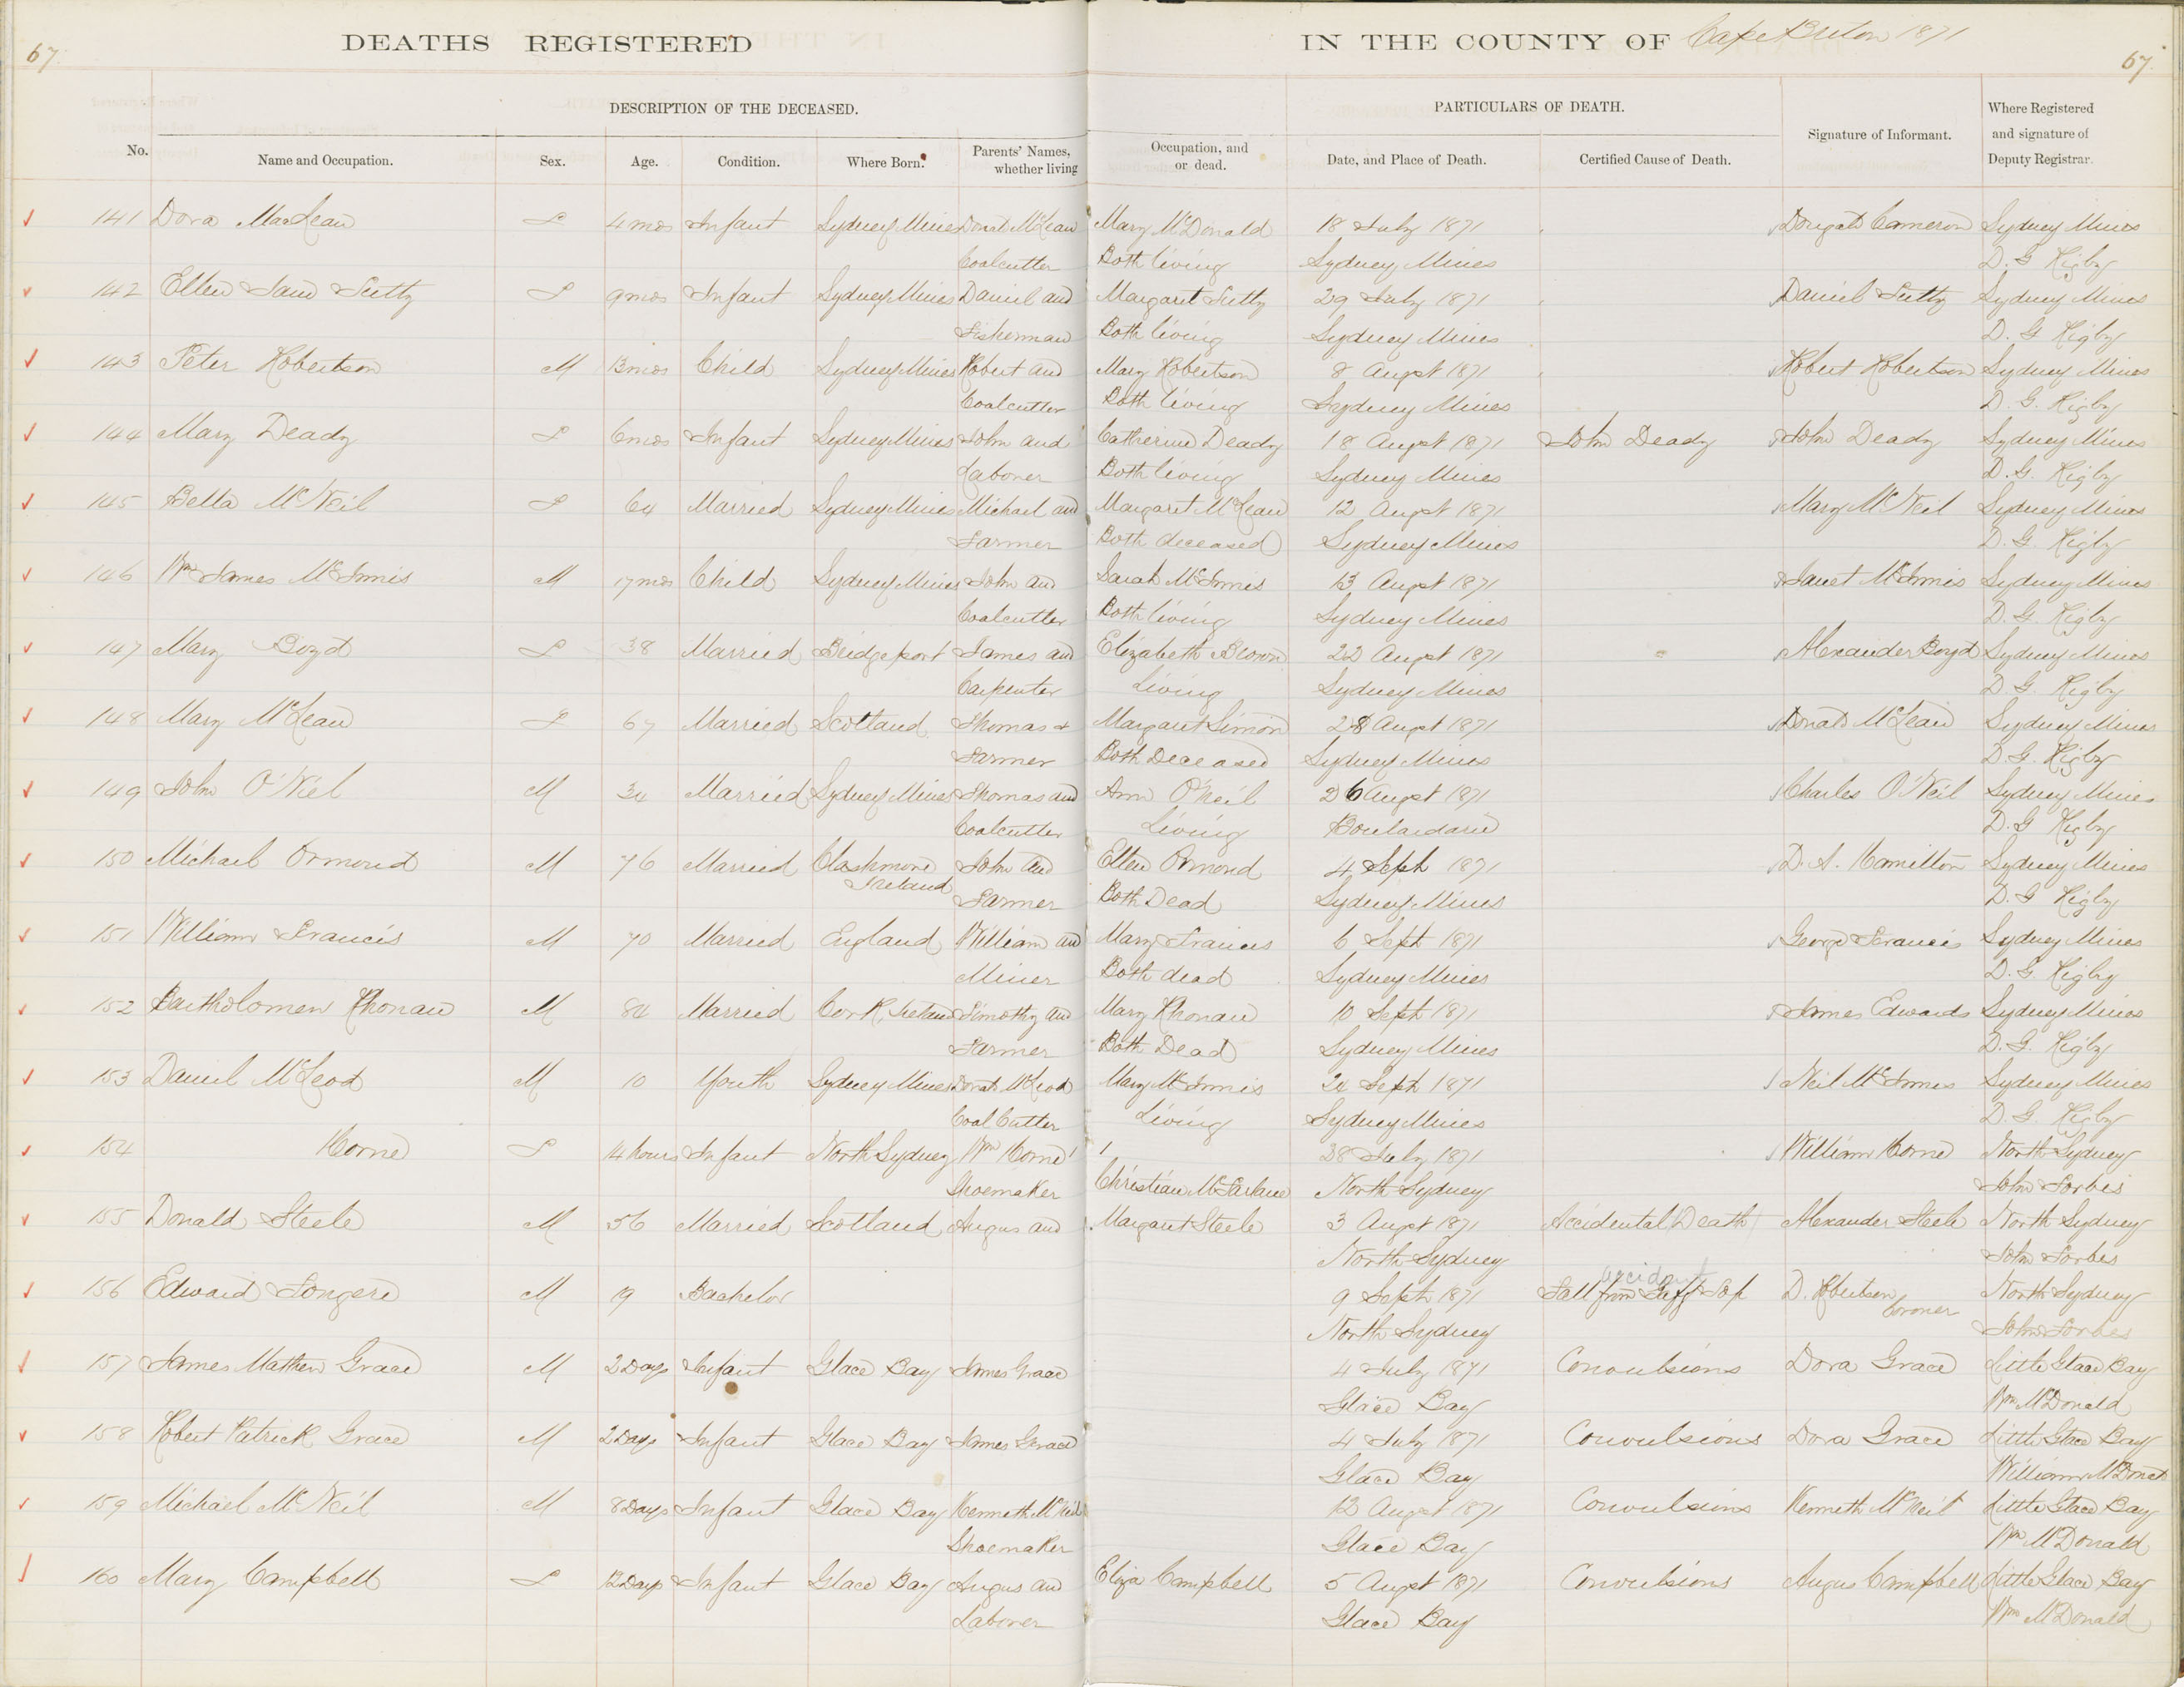 67.
DEATHS REGISTERED IN THE COUNTY OF Cape Breton 1871
67.
DESCRIPTION OF THE DECEASED. PARTICULARS OF DEATH.
No. Name and Occupation. Sex. Age. Condition. Where Born. Parents' Names, whether living Occupation, and or dead. Date, and Place of Death. Certified Cause of Death. Signature of Informant. Where Registered and signature of Deputy Registrar.
141 Dora MacLean F 4 mos Infant Sydney Mines Donald McLean Mary McDonald 18 July 1871 Dougald Cameron Sydney Mines
Coalcutter Both living Sydney Mines D. G Rigby
142 Ellen Jane F 9 mos Infant Sydney Mines Daniel and Margaret 29 July 1871 Daniel Sydney Mines
Fisherman Both living Sydney Mines D. G Rigby
143 Peter Robertson M 13 mos Child Sydney Mines Robert and Mary Robertson 8 Augst 1871 Robert Robertson Sydney Mines
Coalcutter Both living Sydney Mines D. G. Rigby
144 Mary Deady F 6 mos Infant Sydney Mines John and Catherine Deady 18 Augst 1871 John Deady John Deady Sydney Mines
Laborer Both living Sydney Mines D. G. Rigby
145 Bella McNeil F 64 Married Sydney Mines Michael and Margaret McLean 12 Augst 1871 Mary McNeil Sydney Mines
Farmer Both deceased Sydney Mines D. G. Rigby
146 Wm James McInnis M 17 mos Child Sydney Mines John and Sarah McInnis 13 Augst 1871 Janet McInnis Sydney Mines
Coalcutter Both living Sydney Mines D. G. Rigby
147 Mary Boyd F 38 Married Bridgeport James and Elizabeth Brown 22 Augst 1871 Alexander Boyd Sydney Mines
Carpenter Living Sydney Mines D. G. Rigby
148 Mary McLean F 67 Married Scotland Thomas & Margaret Simon 28 Augst 1871 Donald McLean Sydney Mines
Farmer Both Deceased Sydney Mines D. G. Rigby
149 John O'Niel M 34 Married Sydney Mines Thomas and Ann O'Neil 26 Augst 1871 Charles O'Neil Sydney Mines
Coalcutter Living Boulardarie D. G Rigby
150 Michael Ormond M 76 Married Clashmore Ireland John and Ellen Ormond 4 Sept 1871 D. A. Hamilton Sydney Mines
Farmer Both Dead Sydney Mines D. G Rigby
151 William Francis M 70 Married England William and Mary Francis 6 Sept 1871 George Francis Sydney Mines
Miner Both dead Sydney Mines D. G Rigby
152 Bartholomew Rhonan M 84 Married Cork, Ireland Timothy and Mary Rhonan 10 Sept 1871 James Edwards Sydney Mines
Farmer Both Dead Sydney Mines D. G. Rigby
153 Daniel McLeod M 10 Youth Sydney Mines Donald McLeod Mary McInnis 24 Sept 1871 Neil McInnes Sydney Mines
Coal Cutter Living Sydney Mines D. G. Rigby
154 Horne F 14 hours Infant North Sydney Wm Horne 28 July 1871 William Horne North Sydney
Shoemaker Christian McFarlane North Sydney John Forbes
155 Donald Steele M 56 Married Scotland Angus and Margaret Steele 3 Augst 1871 Accidental Death Alexander Steele North Sydney
North Sydney John Forbes
156 Edward M 19 Bachelor 9 Sept 1871 accident Fall from Gaff Top D. Robertson Coroner North Sydney
North Sydney John Forbes
157 James Mathew Grace M 2 Days Infant Glace Bay James Grace 4 July 1871 Convulsions Dora Grace Little Glace Bay
Glace Bay Wm McDonald
158 Robert Patrick Grace M 2 Days Infant Glace Bay James Grace 4 July 1871 Convulsions Dora Grace Little Glace Bay
Glace Bay William McDonald
159 Michael McNeil M 8 Days Infant Glace Bay Kenneth McNeil 12 Augst 1871 Convulsions Kenneth McNeil Little Glace Bay
Shoemaker Glace Bay Wm McDonald
160 Mary Campbell F 12 Days Infant Glace Bay Angus and Eliza Campbell 5 Augst 1871 Convulsions Angus Campbell Little Glace Bay
Laborer Glace Bay Wm McDonald